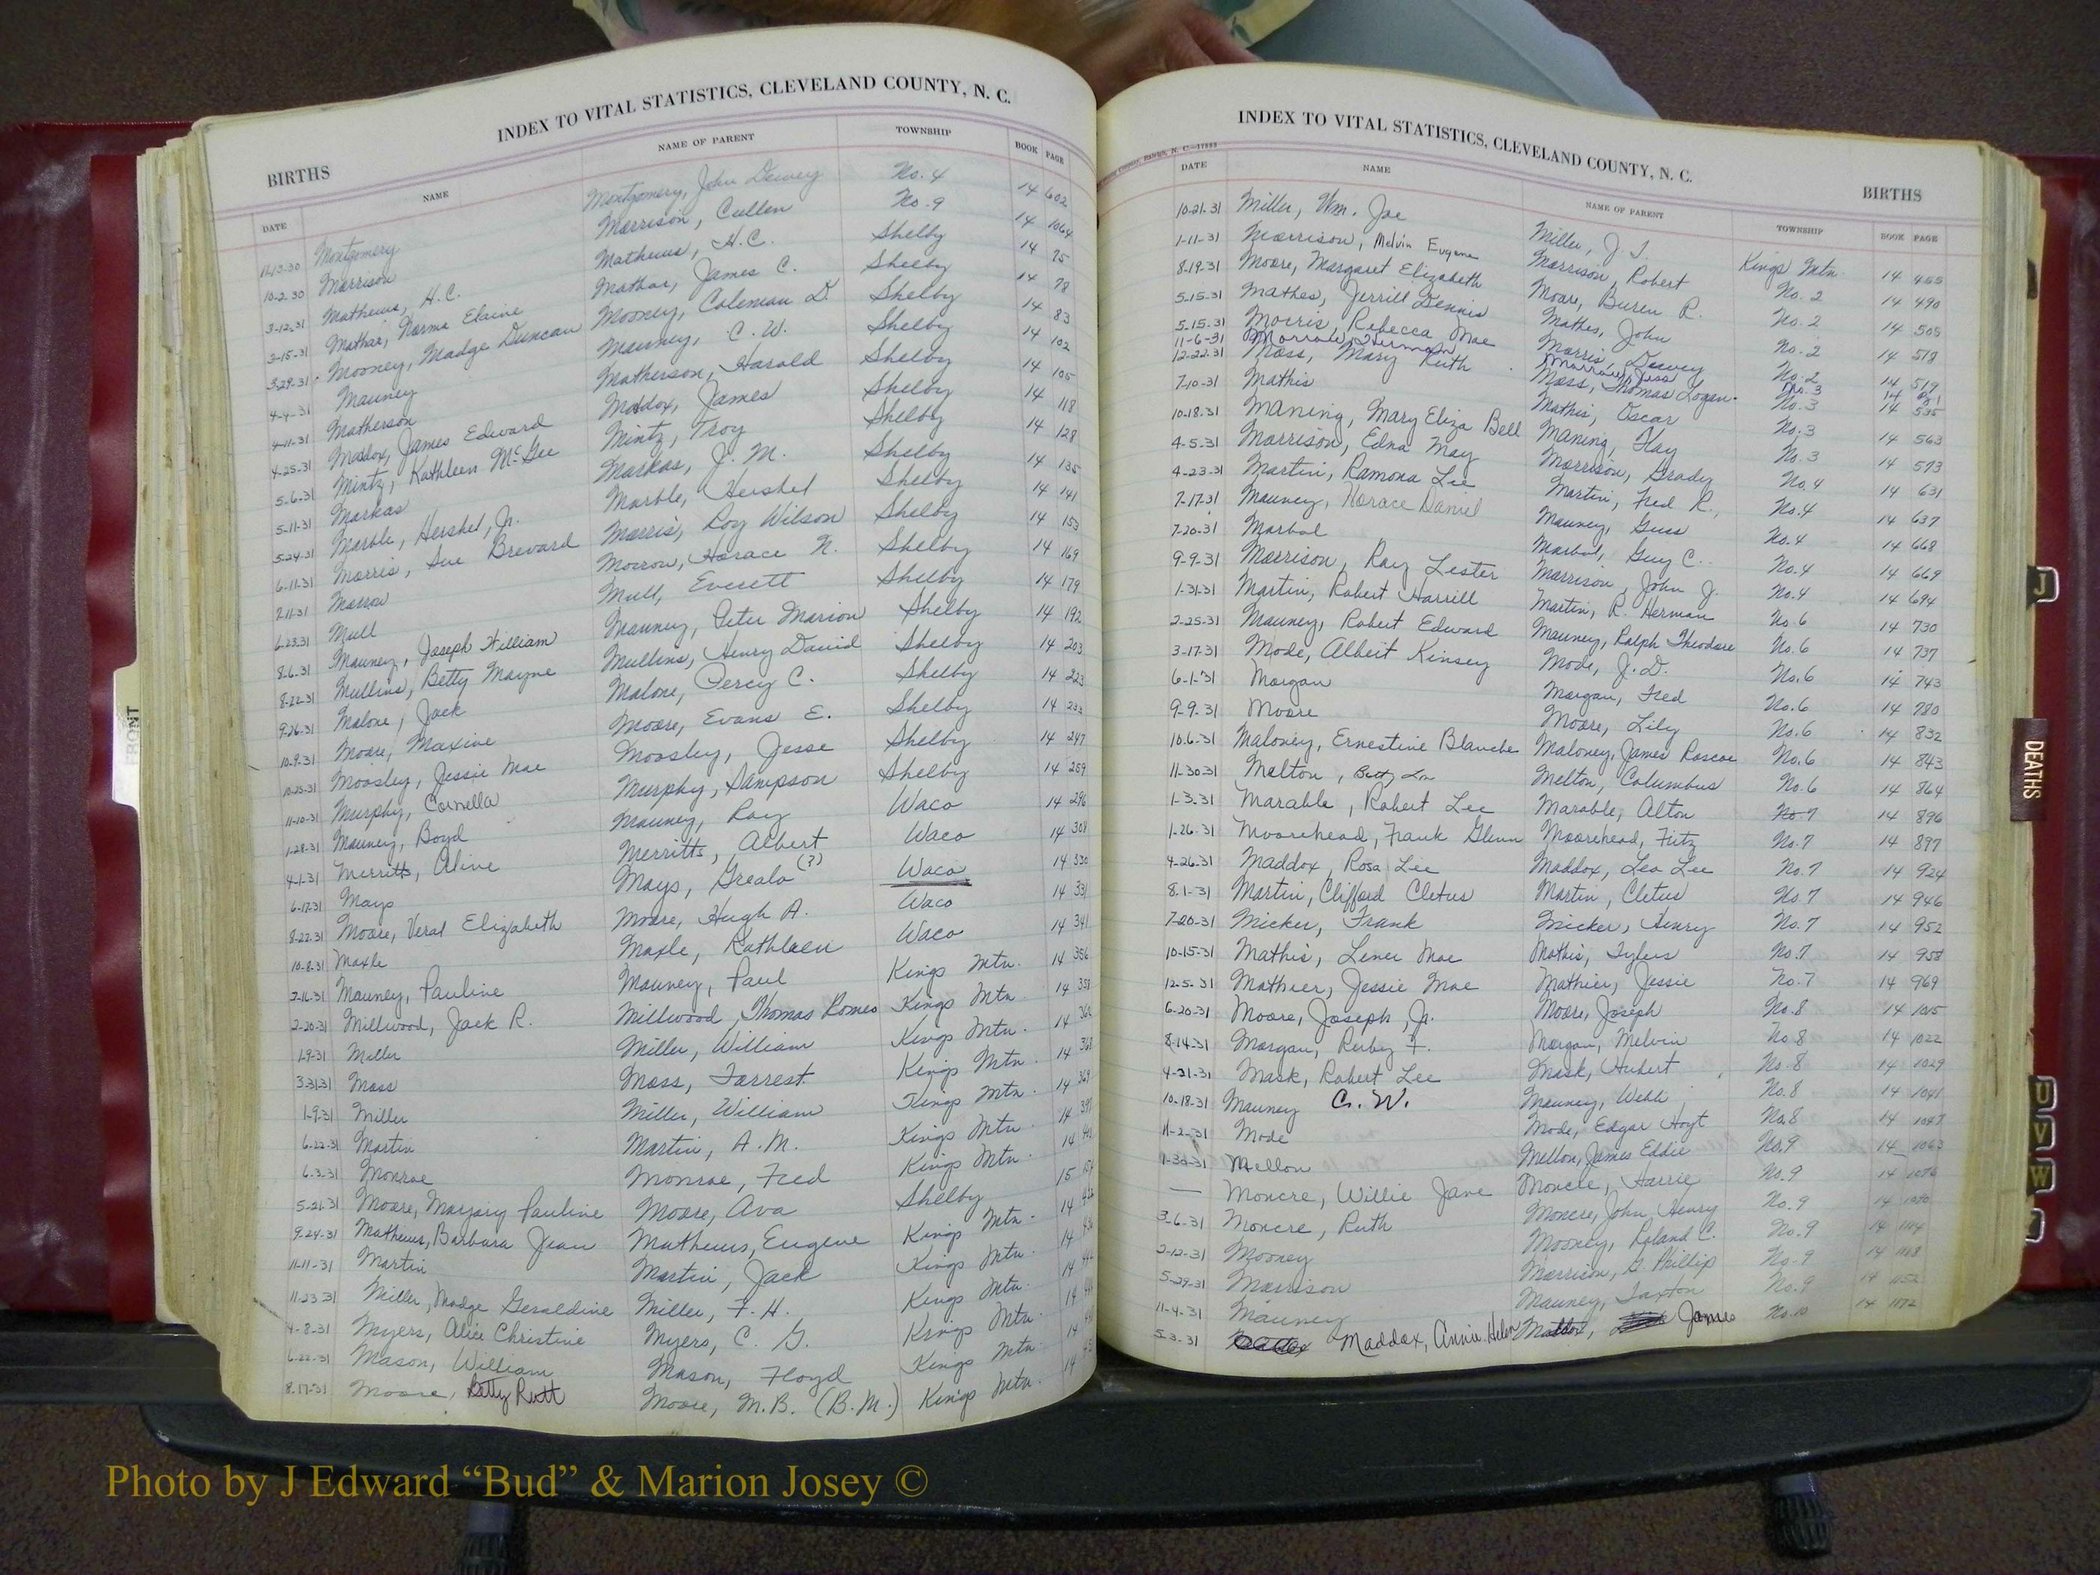 INDEX TO VITAL STATISTICS, CLEVELAND COUNTY, N. C.
BIRTHS
DATE NAME NAME OF PARENT TOWNSHIP BOOK PAGE
11-13-30 Montgomery Montgomery, John Dewey No. 4 14 602
10-2-30 Morrison Morrison, Cullen No. 9 14 1064
3-12-31 Mathews, H.C. Mathews, H.C. Shelby 14 75
3-15-31 Mathar, Norma Elaine Mathar, James C. Shelby 14 78
3-29-31 Mooney, Madge Duncan Mooney, Coleman D. Shelby 14 83
4-4-31 Mauney Mauney, C. W. Shelby 14 102
4-11-31 Matherson Matherson, Harold Shelby 14 105
4-25-31 Maddox, James Edward Maddox, James Shelby 14 118
5-6-31 Mintz, Kathleen McGee Mintz, Troy Shelby 14 128
5-11-31 Markas Markas, J. M. Shelby 14 135
5-24-31 Marble, Hershel, Jr. Marble, Hershel Shelby 14 141
6-11-31 Morris, Sue Brevard Morris, Roy Wilson Shelby 14 153
7-11-31 Morrow Morrow, Horace N. Shelby 14 169
6-23-31 Mull Mull, Everett Shelby 14 179
8-6-31 Mauney, Joseph William Mauney, Peter Marion Shelby 14 192
8-22-31 Mullins, Betty Mayne Mullins, Henry David Shelby 14 203
9-26-31 Malone, Jack Malone, Percy C. Shelby 14 223
10-9-31 Moore, Maxine Moore, Evans E. Shelby 14 233
10-25-31 Moosley, Jessie Mae Moosley, Jesse Shelby 14 247
11-10-31 Murphy, Cornella Murphy, Sampson Shelby 14 259
1-28-31 Mauney, Boyd Mauney, Roy Waco 14 296
4-1-31 Merritts, Aline Merritts, Albert Waco 14 308
6-17-31 Mays Mays, Grealo (?) Waco 14 330
8-22-31 Moore, Veral Elizabeth Moore, Hugh A. Waco 14 331
10-8-31 Maxle Maxle, Kathleen Waco 14 341
2-16-31 Mauney, Pauline Mauney, Paul Kings Mtn. 14 356
2-20-31 Millwood, Jack R. Millwood, Thomas Romeo Kings Mtn. 14 358
1-9-31 Miller Miller, William Kings Mtn. 14
3-31-31 Moss Moss, Forrest Kings Mtn. 14 368
1-9-31 Miller Miller, William Kings Mtn. 14 369
6-22-31 Martin Martin, A. M. Kings Mtn. 14
6-3-31 Monroe Monroe, Fred Kings Mtn. 14
5-21-31 Moore, Marjory Pauline Moore, Ava Shelby 15
9-24-31 Mathews, Barbara Jean Mathews, Eugene Kings Mtn. 14
11-11-31 Martin Martin, Jack Kings Mtn. 14
11-23-31 Miller, Madge Geraldine Miller, F. H. Kings Mtn. 14
4-8-31 Myers, Alice Christine Myers, C. G. Kings Mtn. 14
6-22-31 Mason, William Mason, Floyd Kings Mtn. 14
8-17-31 Moore, Betty Rutt Moore, M.B. (B.M.) Kings Mtn. 14
INDEX TO VITAL STATISTICS, CLEVELAND COUNTY, N. C.
BIRTHS
DATE NAME NAME OF PARENT TOWNSHIP BOOK PAGE
10-21-31 Miller, Wm. Joe Miller, J. T. Kings Mtn. 14 455
1-11-31 Morrison, Melvin Eugene Morrison, Robert No. 2 14 490
8-19-31 Moore, Margaret Elizabeth Moore, Buren R. No. 2 14 508
5-15-31 Mathes, Jerrill Dennis Mathes, John No. 2 14 518
5-15-31 Morris, Rebecca Mae Morris, Dewey No. 2 14 519
11-6-31 Herman No. 3 14
12-22-31 Moss, Mary Ruth Moss, Thomas Logan No. 3 14 535
7-10-31 Mathis Mathis, Oscar No. 3 14 563
10-18-31 Maning, Mary Eliza Bell Maning, Hay No. 3 14 573
4-5-31 Morrison, Edna May Morrison, Grady No. 4 14 631
4-23-31 Martin, Ramona Lee Martin, Fred R. No. 4 14 637
7-17-31 Mauney, Horace Daniel Mauney, Guss No. 4 14 668
7-20-31 Marbol Marbol, Guy C. No. 4 14 669
9-9-31 Morrison, Ray Lester Morrison, John J. No. 4 14 694
1-31-31 Martin, Robert Harrill Martin, R. Herman No. 6 14 730
2-25-31 Mauney, Robert Edward Mauney, Ralph Theodore No. 6 14 737
3-17-31 Mode, Albert Kinsey Mode, J. D. No. 6 14 743
6-1-31 Morgan Morgan, Fred No. 6 14 780
9-9-31 Moore Moore, Lily No. 6 14 832
10-6-31 Maloney, Ernestine Blanche Maloney, James Roscoe No. 6 14 843
11-30-31 Melton, Betty Lou Melton, Columbus No. 6 14 864
1-3-31 Marable, Robert Lee Marable, Alton No. 7 14 896
1-26-31 Moorehead, Frank Glenn Moorehead, Fitz No. 7 14 897
4-26-31 Maddox, Rosa Lee Maddox, Leo Lee No. 7 14 924
8-1-31 Martin, Clifford Cletus Martin, Cletus No. 7 14 946
7-20-31 Micker, Frank Micker, Henry No. 7 14 952
10-15-31 Mathis, Lener Mae Mathis, Tylers No. 7 14 958
12-5-31 Mathier, Jessie Mae Mathier, Jessie No. 7 14 969
6-20-31 Moore, Joseph, Jr. Moore, Joseph No. 8 14 1015
8-14-31 Morgan, Rerby F. Morgan, Melvin No. 8 14 1022
4-21-31 Mask, Robert Lee Mask, Hubert No. 8 14 1029
10-18-31 Mauney C. W. Mauney, Webb No. 8 14 1041
11-2-31 Mode Mode, Edgar Hoyt No. 8 14 1047
1-30-31 Mellon Mellon, James Eddie No. 9 14 1063
— Moncre, Willie Jane Moncre, Harrie No. 9 14 1076
3-6-31 Moncre, Ruth Moncre, John Henry No. 9 14
2-12-31 Mooney Mooney, Roland C. No. 9 14
5-29-31 Morrison Morrison, G. Phillip No. 9 14
11-4-31 Mauney Mauney, Saxton No. 9 14 1152
5-3-31 Maddox, Annie Helen Maddox, James No. 10 14 1172
FRONT
J
DEATHS
U
V
W
Photo by J Edward “Bud” & Marion Josey ©